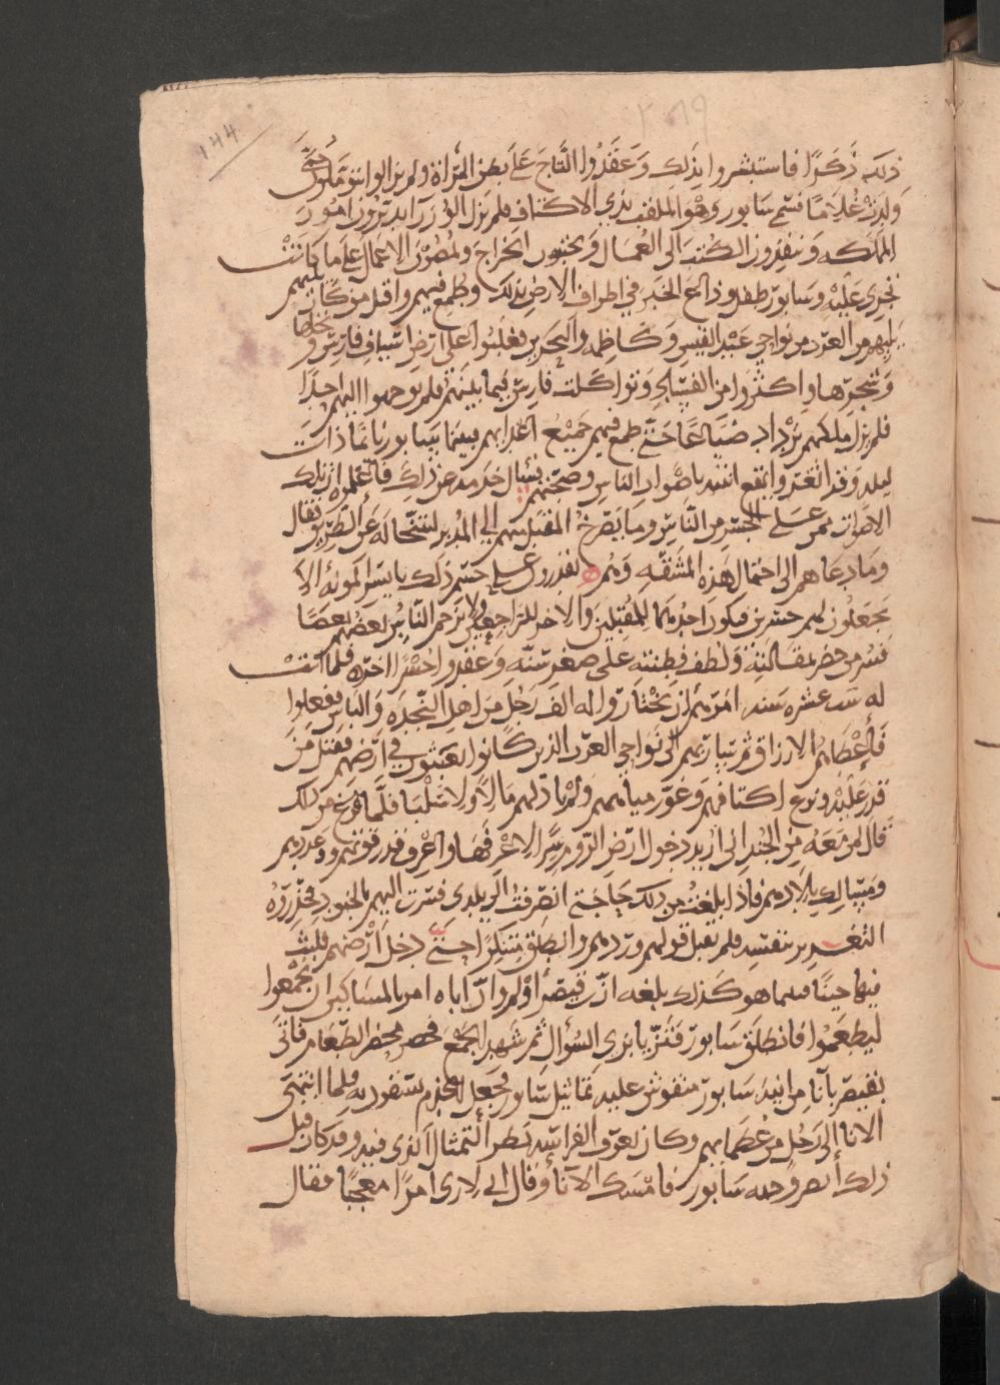 ١٤٤
ذلك ذكرًا فاستبشروا بذلك وعقدوا التاج على بطن المرأة ولم يزالوا يتوقعون حتى
ولدت غلامًا فسمي سابور وهو الملقب بذي الاكتاف فلم تزل الوزرآ يدبرون امور
المملكه وينفذون الكتب الى العمال ويجتبون الخراج ويمضون الاعمال على ما كانت
تجري عليه وسابور طفل وذاع الخبر في اطراف الارض بذلك وطمع فيهم واقبل من كان
يليهم من العرب من نواحي عبد القيس وكاظمه والبحرين فغلبوا على ارض اسياف فارس ونخلها
وشجرها واكثروا من الفساد وتواكلت فارس فيما بينهم فلم يوجهوا اليهم احدًا
فلم يزل ملكهم يزداد ضياعًا حتى طمع فيهم جميع اعدايهم بينما سابور نايمًا ذات
ليله وقد اثغر وايفع انتبه باصوات الناس وضجتهم فسال خدمه عن ذلك فاعلموه ان تلك
الاصوات ممن على الجسر من الناس وما يصرخ المقبل منهم الى المدبر ليتنحا له عن الطريق فقال
وما دعاهم الى احتمال هذه المشقه وهم يقدرون على حسم ذلك بايسر المونه الا
يجعلون لهم جسرين فيكون احدهما للمقبلين والاخر للراجعين ولا يزحم الناس بعضهم بعضًا
فسر من حضر بمقالته ولطف فطنته على صغر سنه وعقدوا جسرًا اخر فلما اتت
له ست عشره سنه امرهم ان يختاروا له الف رجل من اهل النجده والباس ففعلوا
فاعطاهم الارزاق ثم سار بهم الى نواحي العرب الذين كانوا يعيثون في ارضهم فقتل من
قدر عليه ونزع اكتافهم وغور مياههم ولم ياخذ لهم مالًا ولا سلبا فلما فرغ من ذلك
قال لمن معه من الجند اني اريد دخول ارض الروم سرًا لاعرفها واعرف قدر قوتهم وعددهم
ومسالك بلادهم فاذا بلغت من ذلك حاجتي انصرفت الى بلدي فسرت اليهم بالجنود فحذروه
التغرير بنفسه فلم يقبل قولهم وردهم وانطلق متنكرًا حتى دخل ارضهم فلبث
فيها حينًا فبينما هو كذلك بلغه ان قيصر اولم وان اباه امر بالمساكين ان يجمعوا
ليطعموا فانطلق سابور فتزيا بزي السؤال ثم شهد الجمع فحضر محضر الطعام فاتى
لقيصر بآنا من انية سابور منقوش عليه تماثيل سابور فجعل الخدم يسقون به فلما انتهى
الانا الى رجل من عظمايهم وكان يعرف الفراسه نظر التمثال الذي فيه وقد كان قبل
ذلك ابصر وجه سابور فامسك الانآ وقال اني لارى امرًا معجبًا فقال